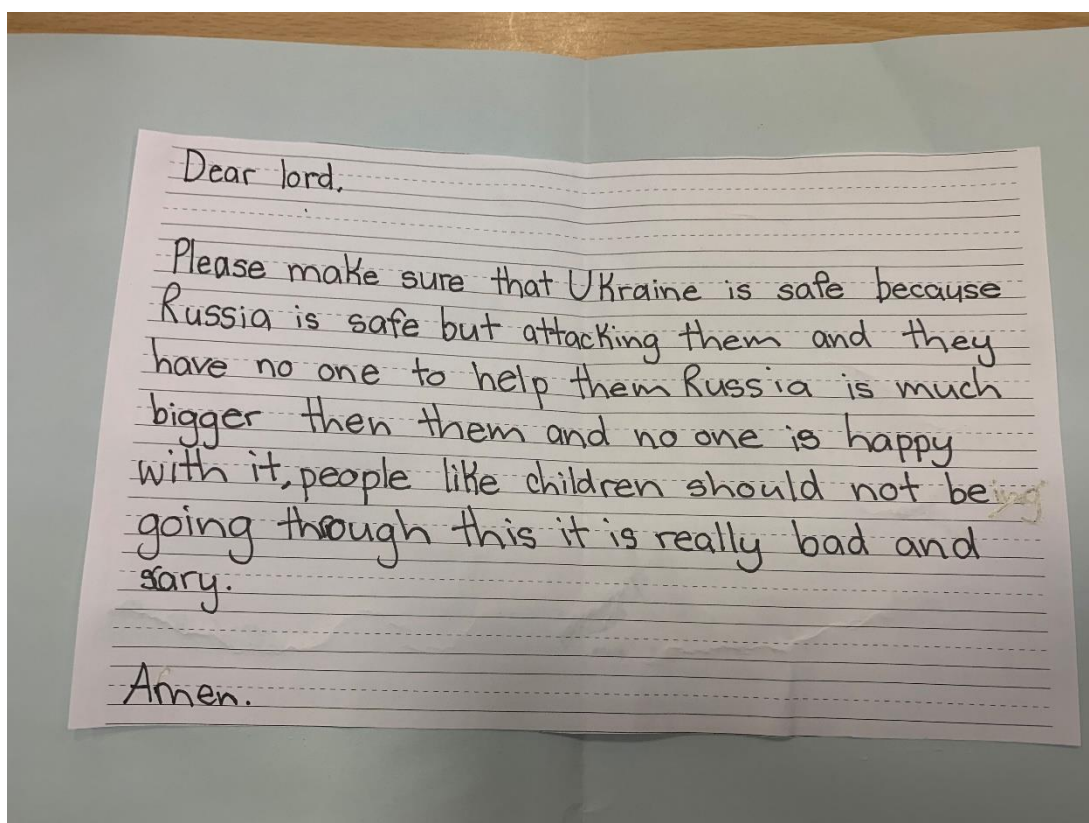 Dear lord,
Please make sure that Ukraine is safe because
Russia is safe but attacking them and they
have no one to help them Russia is much
bigger then them and no one is happy
with it, people like children should not being
going through this it is really bad and
scary.
Amen.